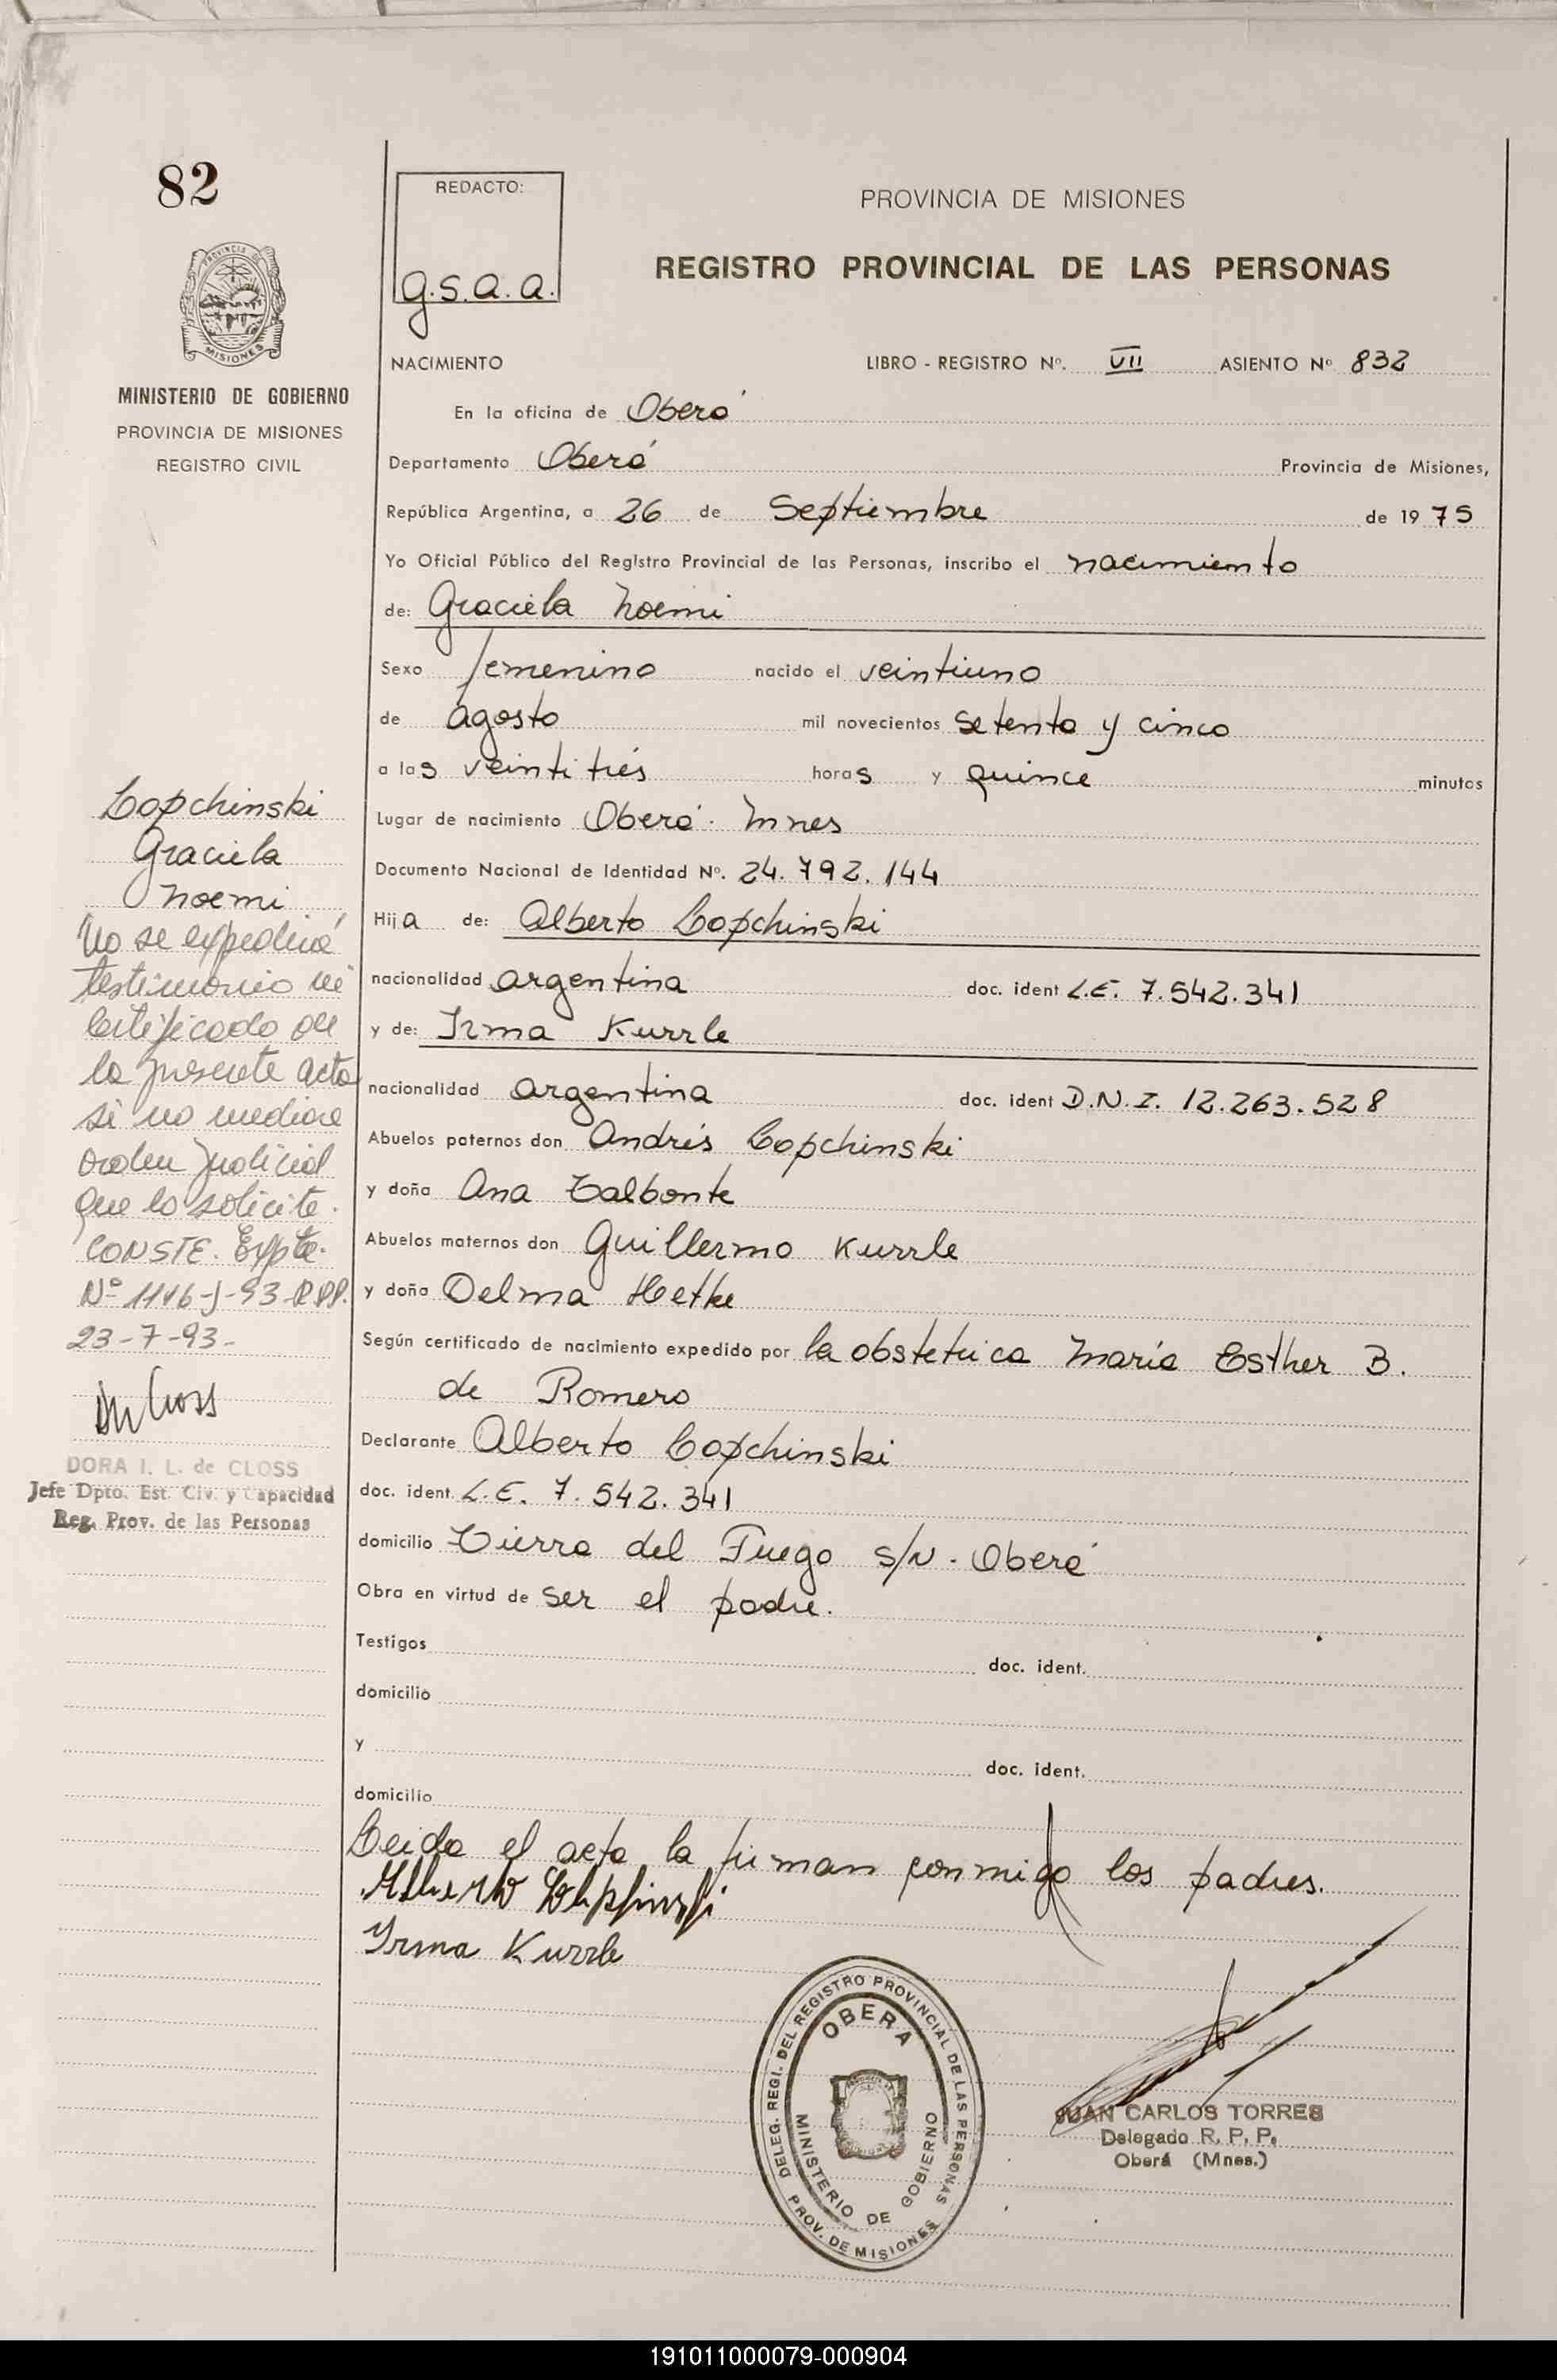 82
PROVINCIA DE
MISIONES
MINISTERIO DE GOBIERNO
PROVINCIA DE MISIONES
REGISTRO CIVIL
REDACTO:
g.s.a.a.
PROVINCIA DE MISIONES
REGISTRO PROVINCIAL DE LAS PERSONAS
NACIMIENTO LIBRO - REGISTRO Nº. VII ASIENTO Nº 832
En la oficina de Oberá
Departamento Oberá Provincia de Misiones,
República Argentina, a 26 de Septiembre de 1975
Yo Oficial Público del Registro Provincial de las Personas, inscribo el nacimiento
de: Graciela Noemi
Sexo femenino nacido el veintiuno
de agosto mil novecientos setenta y cinco
a las veintitrés horas y quince minutos
Lugar de nacimiento Oberá - Mnes
Documento Nacional de Identidad Nº. 24.792.144
Hija de: Alberto Lopchinski
nacionalidad argentina doc. ident L.E. 7.542.341
y de: Irma Kurrle
nacionalidad argentina doc. ident D.N.I. 12.263.528
Abuelos paternos don Andrés Lopchinski
y doña Ana
Abuelos maternos don Guillermo Kurrle
y doña Delma Hetke
Según certificado de nacimiento expedido por la obstetrica María Esther B.
de Romero
Declarante Alberto Lopchinski
doc. ident. L.E. 7.542.341
domicilio Tierra del Fuego s/N - Oberá
Obra en virtud de ser el padre.
Testigos doc. ident.
domicilio
y doc. ident.
domicilio
Leida el acta la firman conmigo los padres.
Irma Kurrle
Lopchinski
Graciela
Noemi
No se expedirá
testimonio ni
certificado de
la presente acta
si no mediare
orden Judicial
que lo solicite.
CONSTE. Expte.
Nº 1146-J-93-RPP.
23-7-93-
DORA I. L. de CLOSS
Jefe Dpto. Est. Civ. y Capacidad
Reg. Prov. de las Personas
DELEG. REGI. DEL REGISTRO PROVINCIAL DE LAS PERSONAS
OBERA
MINISTERIO DE GOBIERNO
PROV. DE MISIONES
JUAN CARLOS TORRES
Delegado R. P. P.
Oberá (Mnes.)
191011000079-000904